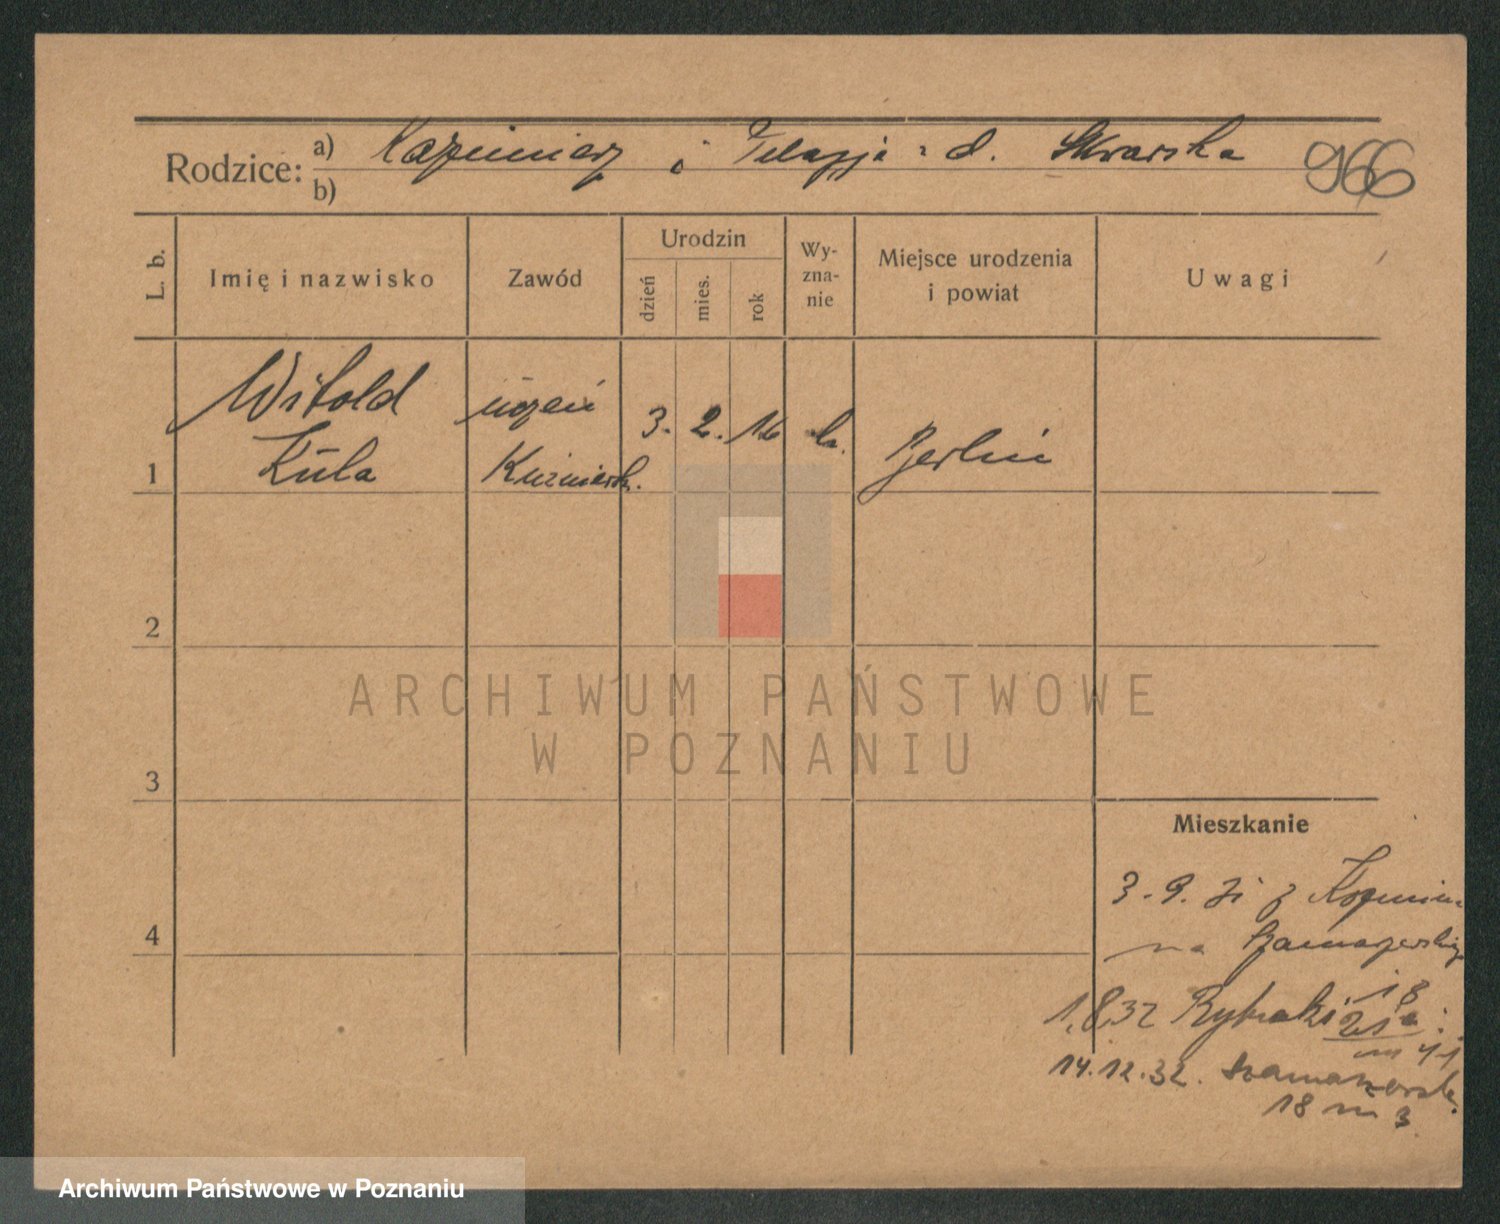 Rodzice: a) Kazimierz i Pelagja z d. Skrarska
b)
966
L. b.
Imię i nazwisko
Zawód
Urodzin
dzień
mies.
rok
Wy-
zna-
nie
Miejsce urodzenia
i powiat
Uwagi
Witold
Kula
uczeń
Kuśniersk.
3. 2. 16
k.
Berlin
1
2
3
4
ARCHIWUM PAŃSTWOWE
W POZNANIU
Mieszkanie
3.9.31 z
na
1.8.32 Rybaki
18
21a
m 41
14.12.32. Szamarzewsk.
18 m 3
Archiwum Państwowe w Poznaniu